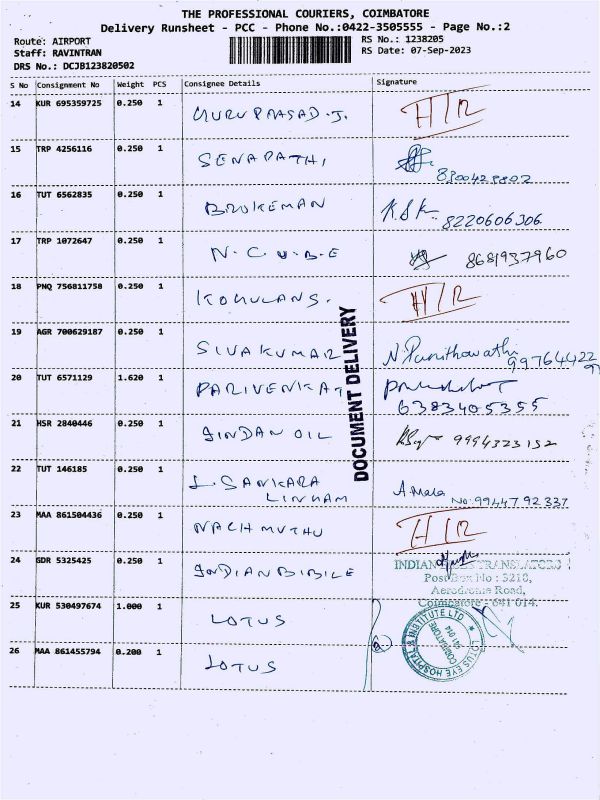 THE PROFESSIONAL COURIERS, COIMBATORE
Delivery Runsheet - PCC - Phone No.:0422-3505555 - Page No.:2
Route: AIRPORT RS No.: 1238205
Staff: RAVINTRAN RS Date: 07-Sep-2023
DRS No.: DCJB123820502
S No Consignment No Weight PCS Consignee Details Signature
14 KUR 695359725 0.250 1 GURU PRASAD.J. H/R
15 TRP 4256116 0.250 1 SENAPATHI
16 TUT 6562835 0.250 1 BROKEMAN K.S.K 8220606306
17 TRP 1072647 0.250 1 N.C.U.B.E 8681937960
18 PNQ 756811758 0.250 1 KOHULANS. H/R
19 AGR 700629187 0.250 1 SIVAKUMAR N. Punithawathi
20 TUT 6571129 1.620 1 PARIVENKAT
6383405355
21 HSR 2840446 0.250 1 JINDAN OIL 9994323152
22 TUT 146185 0.250 1 L. SANKARA A. Mala
LINHAM No: 9944792337
23 MAA 861504436 0.250 1 NACHMUTHU H/R
24 GDR 5325425 0.250 1 INDIANBIBILE INDIAN TRANSLATORS
Post Box No : 3210,
Aerodrome Road,
Coimbatore - 641 014.
25 KUR 530497674 1.000 1 LOTUS
26 MAA 861455794 0.200 1 LOTUS
LOTUS EYE HOSPITAL & INSTITUTE LTD
COIMBATORE
641 014
DOCUMENT DELIVERY